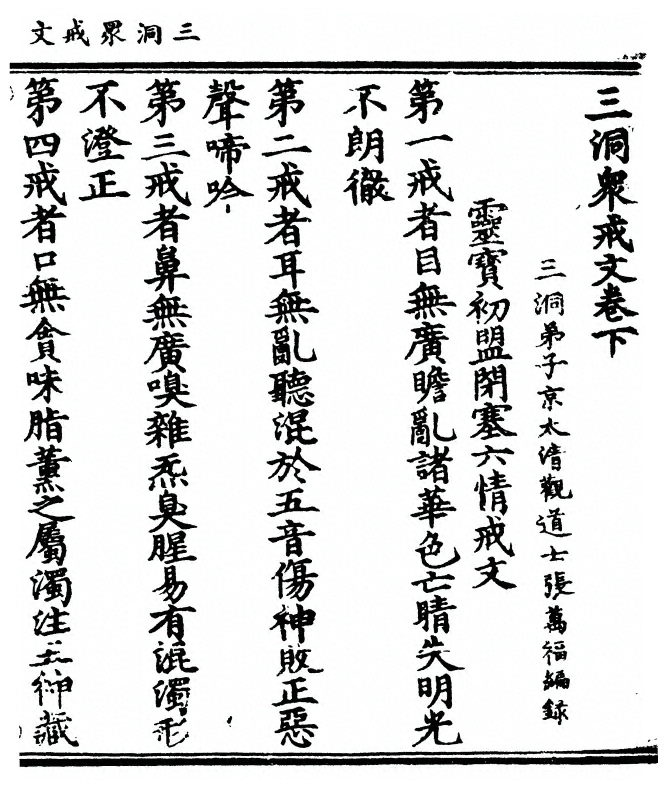 三洞眾戒文
三洞衆戒文卷下
三洞弟子京太清觀道士張萬福編録
靈寶初盟閉塞六情戒文
第一戒者目無廣瞻亂諸華色亡睛失明光
不朗徹
第二戒者耳無亂聽混於五音傷神敗正惡
聲啼吟
第三戒者鼻無廣嗅雜炁臭腥易有混濁形
不澄正
第四戒者口無貪味脂薰之屬濁注五神藏